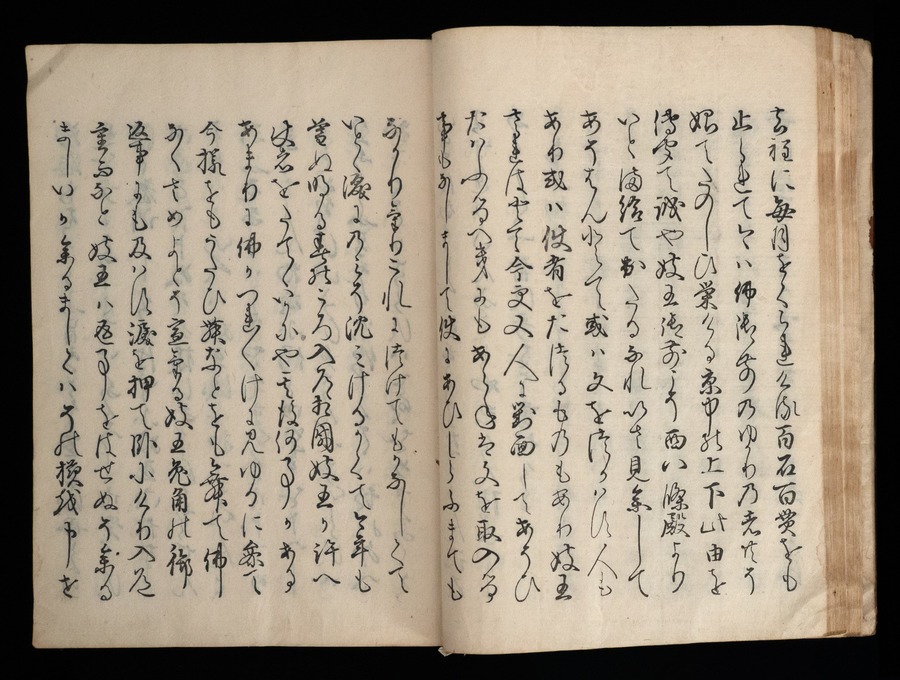 去程に毎月をくられける百石百貫をも
止られて今ハ仏御前のゆかりの者共そ
始てたのしひ栄ける京中の上下此由を
伝聞て誠や妓王御前こそ西八條殿より
いとま給て出たるなれいさ見参して
あそはんとて或ハ文をつかハす人も
あり或ハ使者をたつるものもあり妓王
されはとて今更又人に対面してあそひ
たはふるへきにもあらねは文を取入る
事もなしまして使にあひしらふまても
なかりけりこれにつけてもかなしくて
いとゝ涙にのみそ沈みけるかくて今年も
暮ぬ明る春のころ入道相国妓王か許へ
使者をたてゝいかにや其後何事かある
あまりに仏かつれ〳〵けに見ゆるに参て
今様をもうたひ舞なとをも舞て仏
なくさめよとそ宣ける妓王兎角の御
返事にも及はす涙を押て臥にけり入道
重而なと妓王ハ返事をはせぬそ参る
ましいか参るましくハその様を申せ